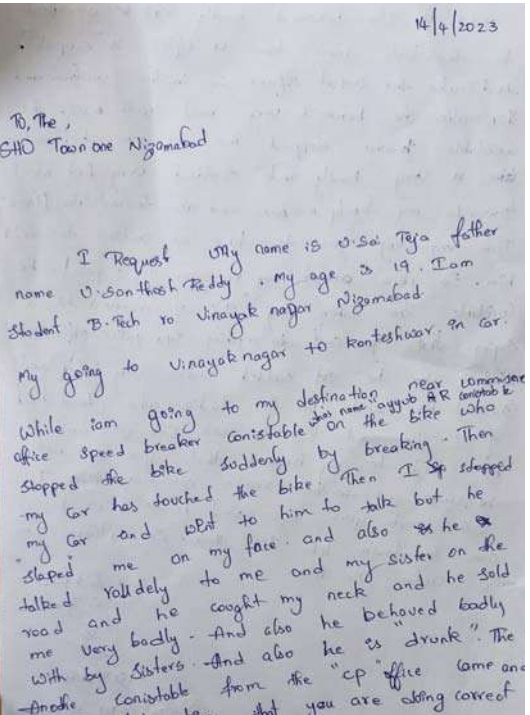 14/4/2023
To, The,
SHO Town one Nizamabad
I Request My name is V.Sai Teja father
name V.Santhosh Reddy. my age is 19. Iam
student B.Tech ro Vinayak nagar Nizamabad.
My going to Vinayak nagar to kanteshwar. in car.
While iam going to my destination near commissere
office speed breaker conistable what name ayyub AR conistable on the bike who
stopped the bike suddenly by breaking. Then
my car has touched the bike. Then I stopped
my car and went to him to talk but he
slaped me on my face. and also he
talked roudely to me and my sister on the
road and he caught my neck and he sold
me very badly. And also he behaved badly
with by sisters. And also he is "drunk". The
Anothe conistable from the "cp" office came and
that you are doing correct